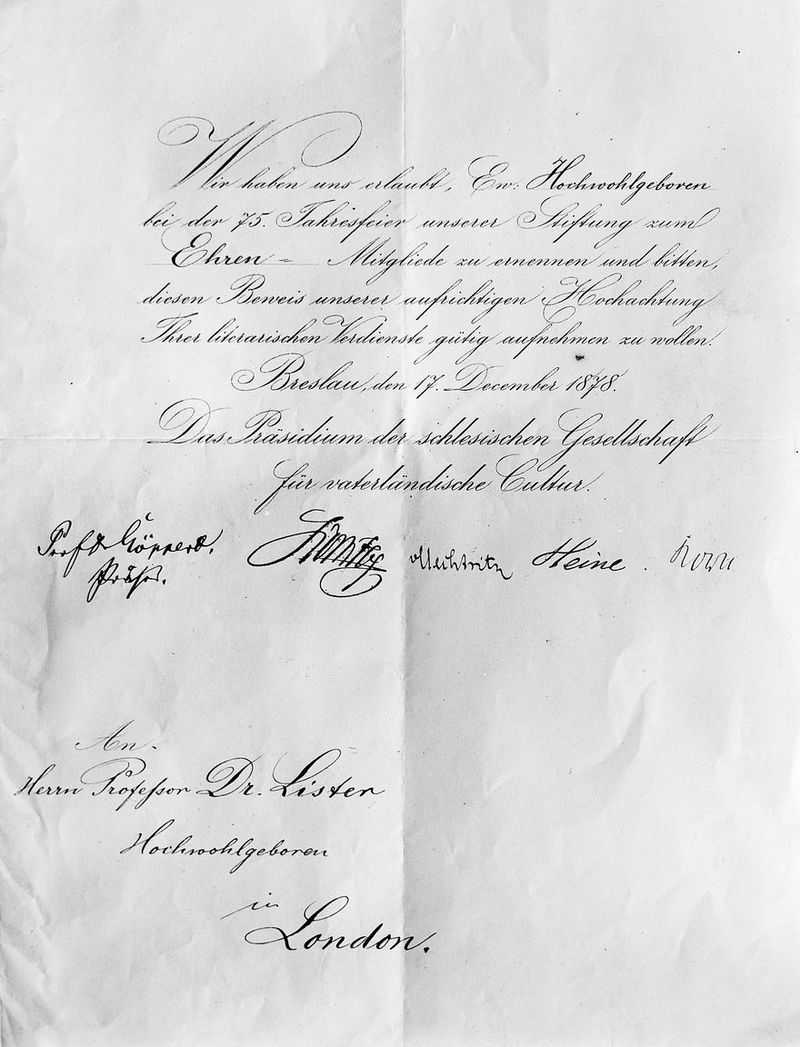 Wir haben uns erlaubt, Ew. Hochwohlgeboren
bei der 75. Jahresfeier unserer Stiftung zum
Ehren - Mitgliede zu ernennen und bitten,
diesen Beweis unserer aufrichtigen Hochachtung
Ihrer literarischen Verdienste gütig aufnehmen zu wollen.
Breslau, den 17. December 1878.
Das Präsidium der schlesischen Gesellschaft
für vaterländische Cultur.
Prof Dr Göppert. Heine.
Präses.
An
Herrn Professor Dr. Lister
Hochwohlgeboren
in
London.